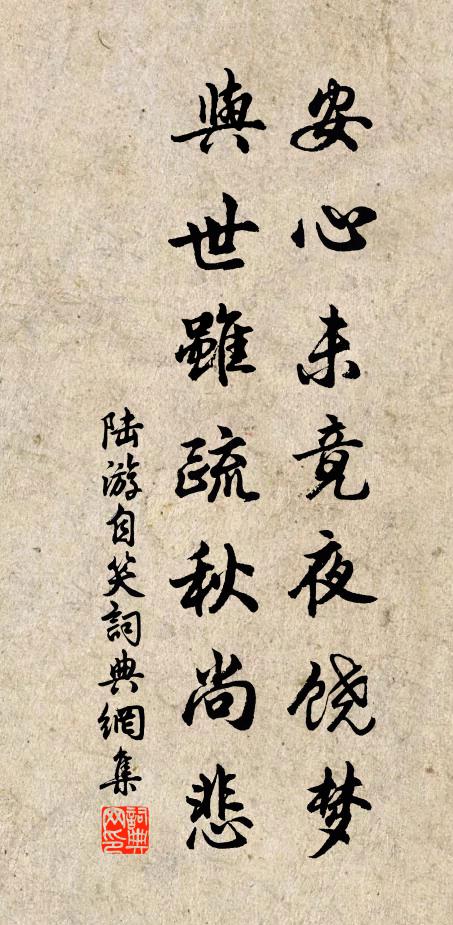 安心未竟夜饶梦
與世雖疏秋尚悲
陆游自笑詞典網集
詞典网印